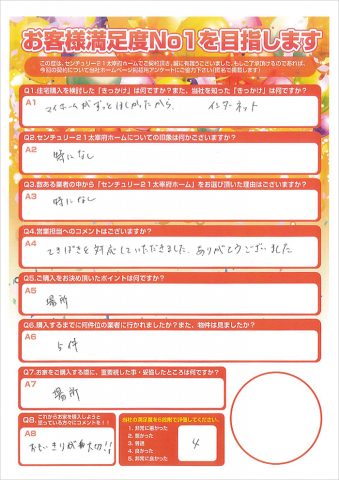 お客様満足度No1を目指します
この度は、センチュリー21太宰府ホームでご契約頂き、誠に有難うございました。もしご了承頂けるのであれば、
今回の契約について当社ホームページ掲載用アンケートにご協力下さい!(匿名で掲載します)
Q1.住宅購入を検討した「きっかけ」は何ですか?また、当社を知った「きっかけ」は何ですか?
A1
マイホームがずっとほしかったから インターネット
Q2.センチュリー21太宰府ホームについての印象は何かございますか?
A2
特になし
Q3.数ある業者の中から「センチュリー21太宰府ホーム」をお選び頂いた理由はございますか?
A3
特になし
Q4.営業担当へのコメントはございますか?
A4
てきぱきと対応していただきました。ありがとうございました
Q5.ご購入をお決め頂いたポイントは何ですか?
A5
場所
Q6.購入するまでに何件位の業者に行かれましたか?また、物件は見ましたか?
A6
5件
Q7.お家をご購入する際に、重要視した事・妥協したところは何ですか?
A7
場所
Q8.これからお家を購入しようと
思っている方々にコメントを!!
A8
おもいきりが大切!!
当社の満足度を5段階で評価してください。
1. 非常に悪かった
2. 悪かった
3. 普通
4. 良かった
5. 非常に良かった
4